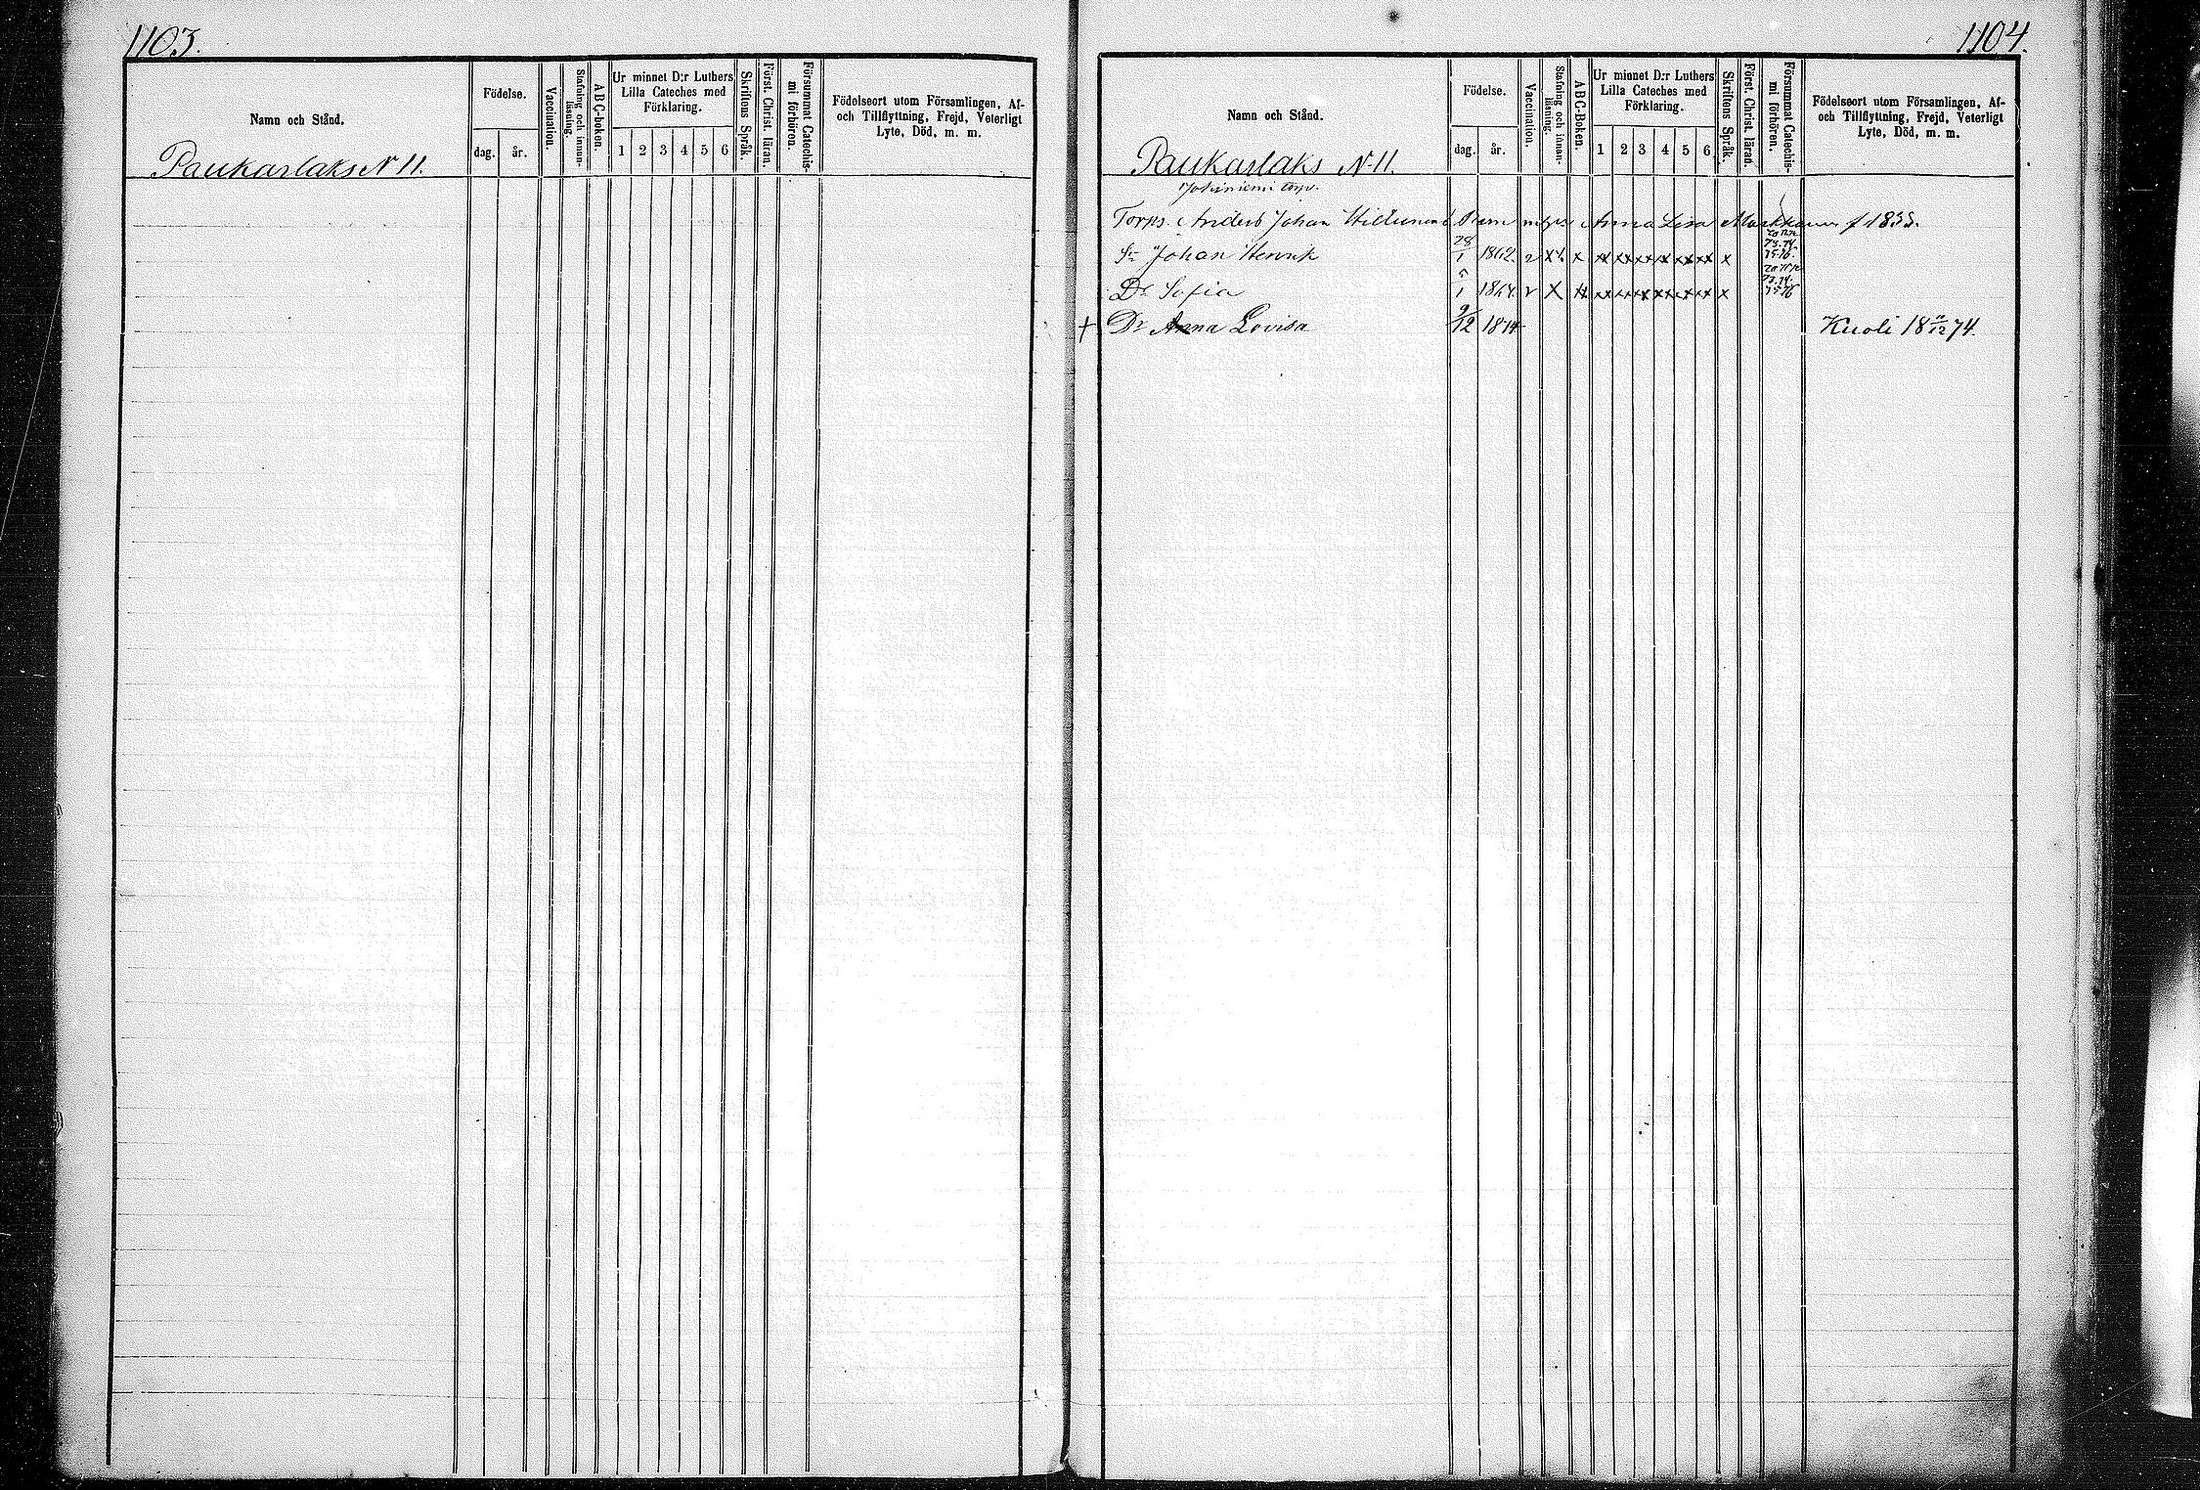 1103.
Namn och Stånd.
Födelse.
dag.
år.
Vaccination.
Stafning och innan-
läsning.
ABC-boken.
Ur minnet D:r Luthers
Lilla Cateches med
Förklaring.
1 2 3 4 5 6
Skriftens Språk.
Först. Christ. läran.
Försummat Catechis-
mi förhören.
Födelseort utom Församlingen, Af-
och Tillflyttning, Frejd, Veterligt
Lyte, Död, m. m.
Paukarlaks N 11.
1104.
Namn och Stånd.
Födelse.
dag.
år.
Vaccination.
Stafning och innan-
läsning.
ABC-Boken.
Ur minnet D:r Luthers
Lilla Cateches med
Förklaring.
1 2 3 4 5 6
Skriftens Språk.
Först. Christ. läran.
Försummat Catechis-
mi förhören.
Födelseort utom Församlingen, Af-
och Tillflyttning, Frejd, Veterligt
Lyte, Död, m. m.
Paukarlaks N 11.
torp.
Torps. Anders Johan Barn Anna Lisa
Sn Johan Henrik 28/1 1862
Dr Sofia 1 1864
+ Dr Anna Lovisa 9/12 1874 Kuoli 18 11/12 74.